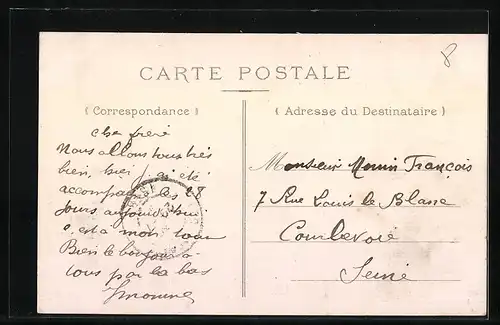 8
CARTE POSTALE
(Correspondance)
(Adresse du Destinataire)
cher frère
Nous allons tous très
bien, hier j ai été
accompagné les 28
Jours aujourd'hui
c. est a mon tour
Bien le bonjour a
tous par la bas
Simonne
Monsieur François
7 Rue Louis Le Blanc
Courbevoie
Seine